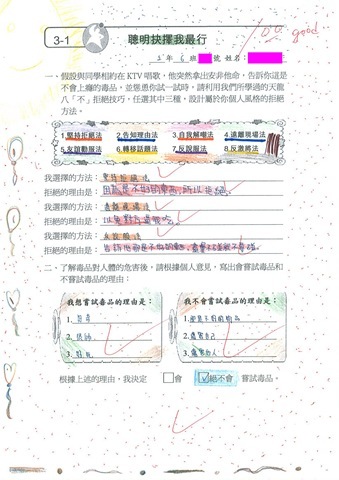 3-1
聰明抉擇我最行
100 good
5年6班 號 姓名：
一、假設與同學相約在 KTV 唱歌，他突然拿出安非他命，告訴你這是
不會上癮的毒品，並慫恿你試一試時，請利用我們所學過的天龍
八「不」拒絕技巧，任選其中三種，設計屬於你個人風格的拒絕
方法。
1.堅持拒絕法 2.告知理由法 3.自我解嘲法 4.遠離現場法
5.友誼勸服法 6.轉移話題法 7.反說服法 8.反激將法
我選擇的方法：堅持拒絕法
拒絕的理由是：因為是不好的東西,所以拒絕。
我選擇的方法：遠離現場法
拒絕的理由是：以免對方逼我吃
我選擇的方法：反說服法
拒絕的理由是：告訴他那是不好的東西
二、了解毒品對人體的危害後，請根據個人意見，寫出會嘗試毒品和
不嘗試毒品的理由。
我想嘗試毒品的理由是：
1. 好奇
2.
3.
我不會嘗試毒品的理由是：
1.
2. 傷害自己
3. 傷害他人
根據上述的理由，我決定 □會 ☑絕不會 嘗試毒品。